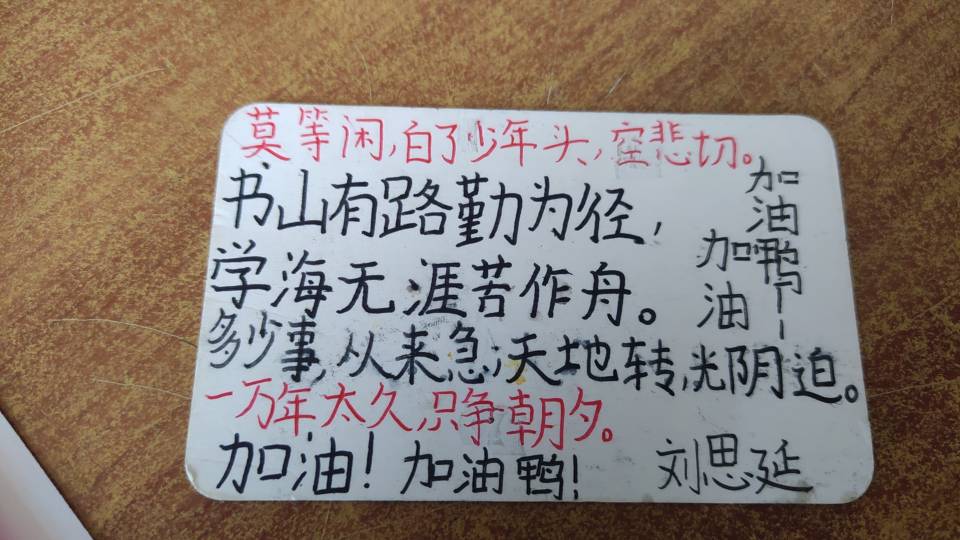 莫等闲,白了少年头,空悲切。
书山有路勤为径,
学海无涯苦作舟。
加油
加油鸭——
多少事,从来急;天地转,光阴迫。
一万年太久,只争朝夕。
加油!加油鸭!
刘思延